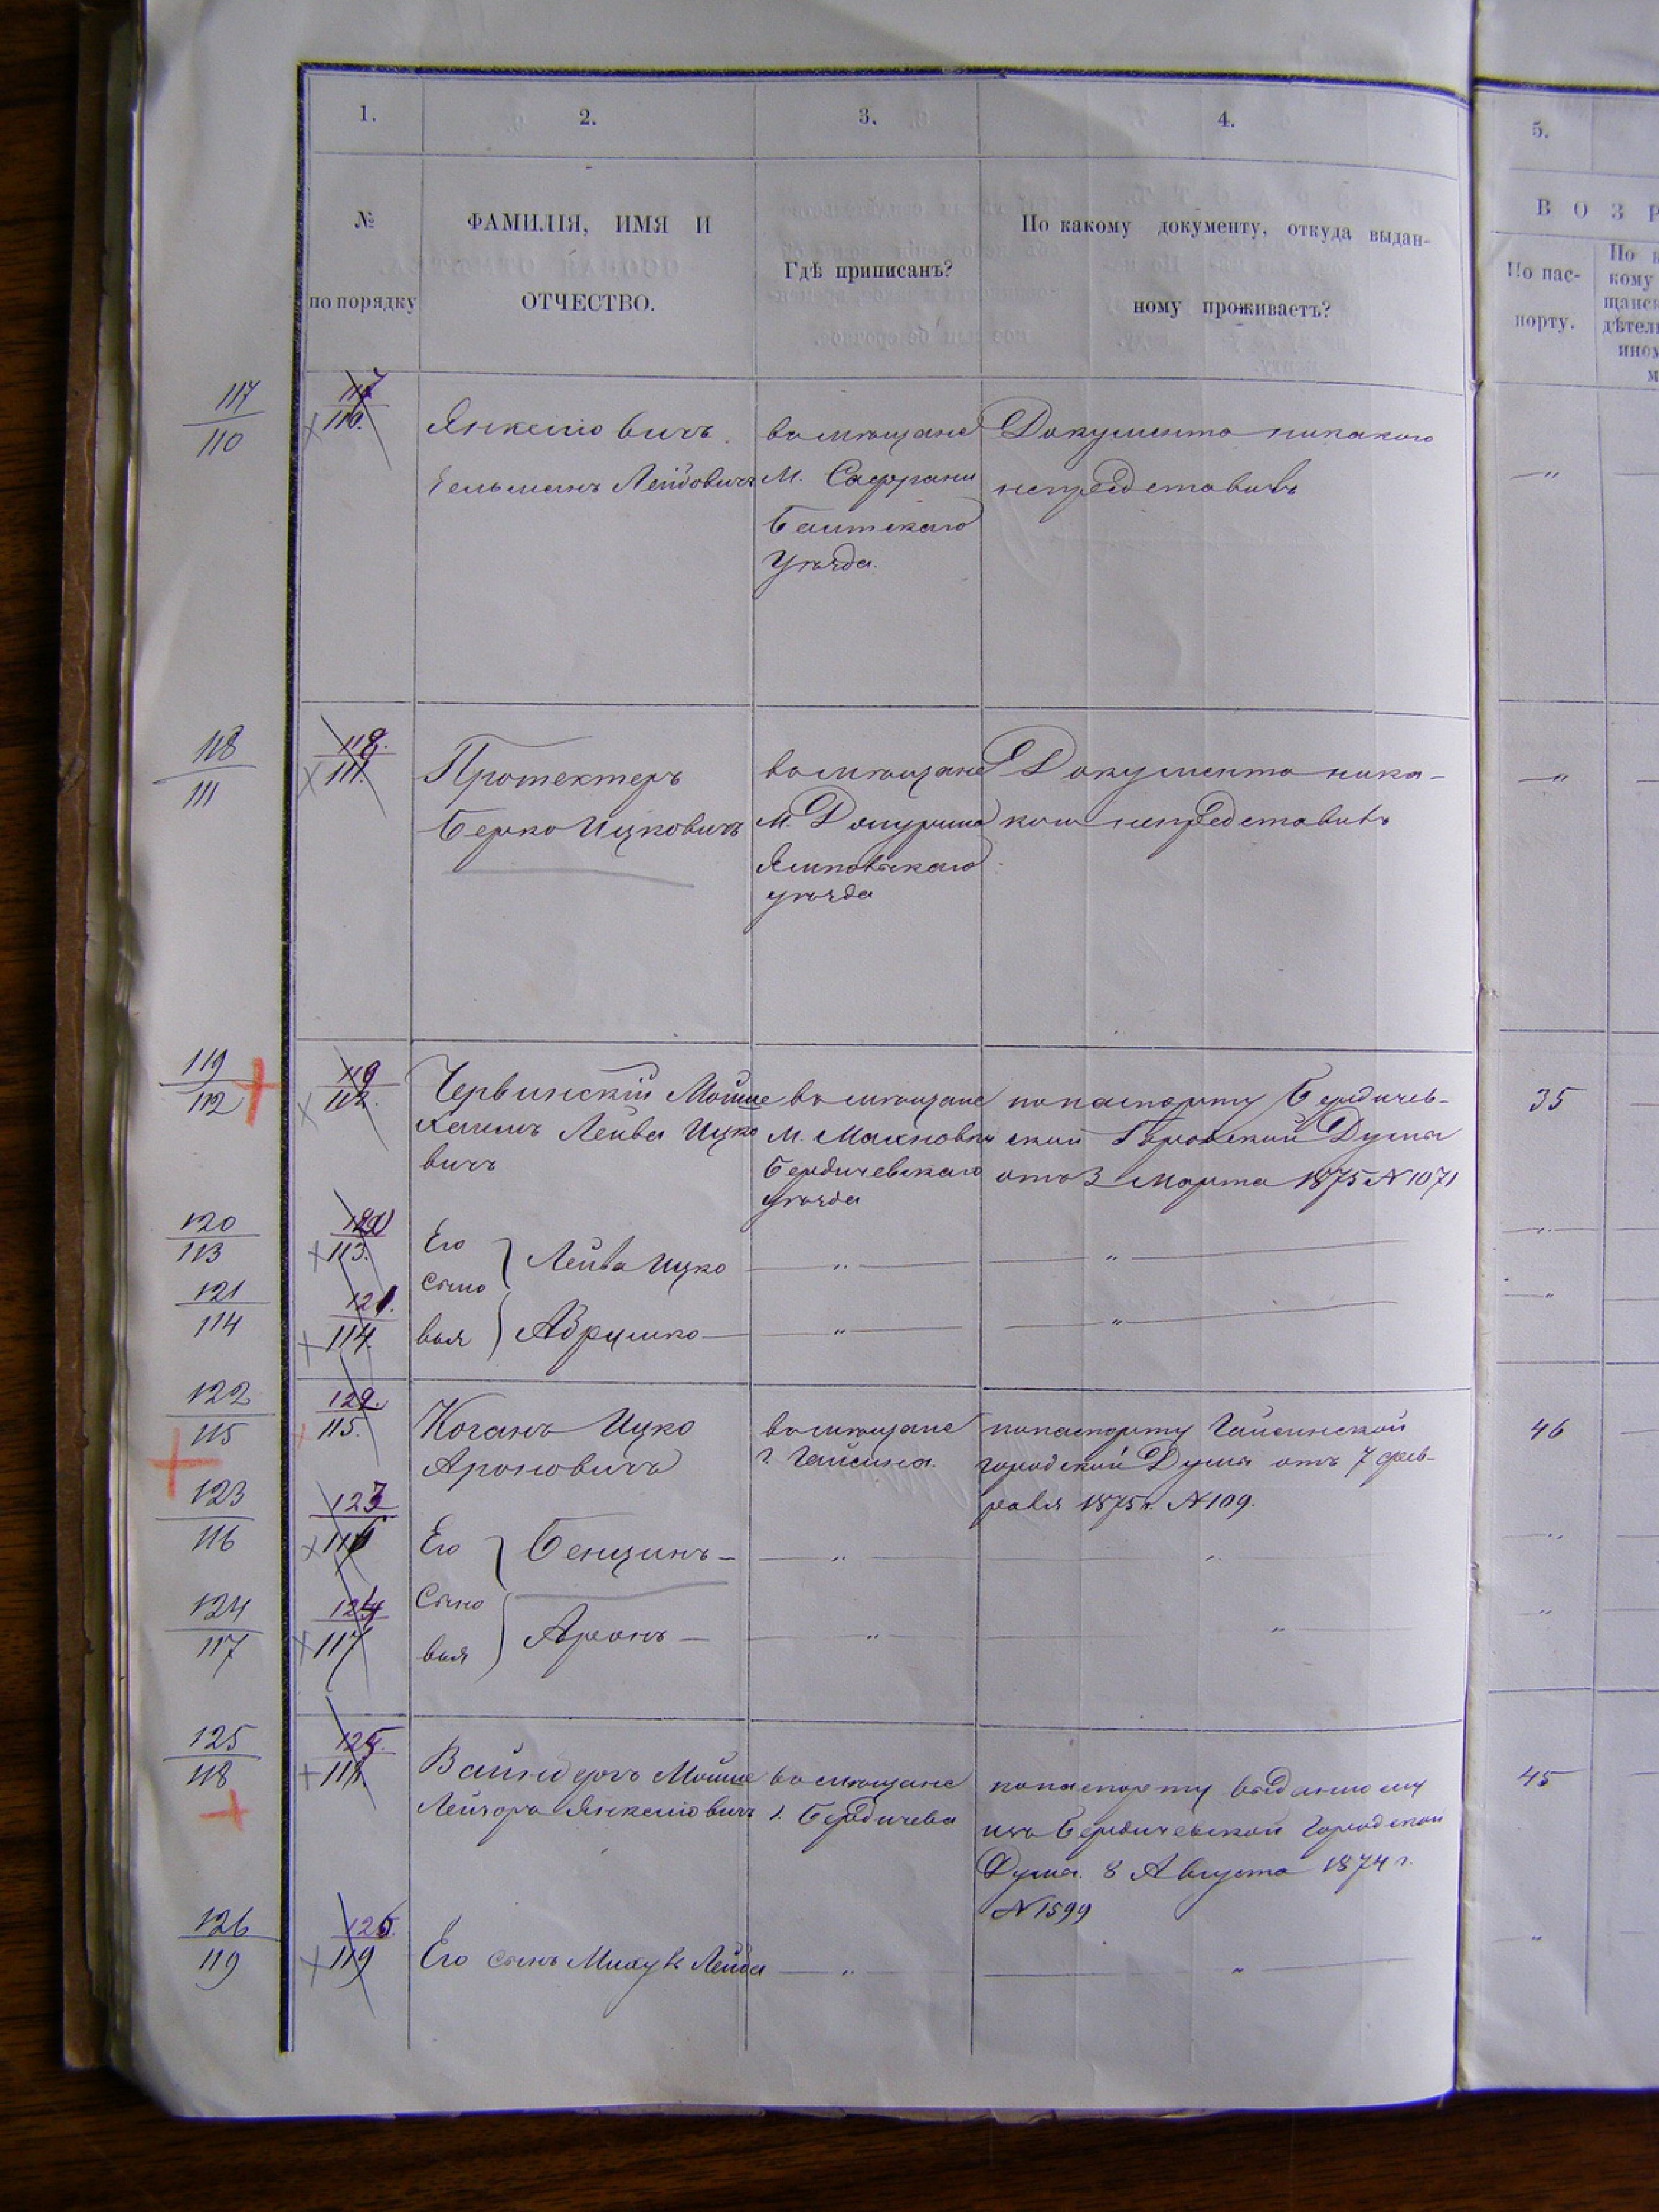 1. 2. 3. 4. 5.
№ по порядку
ФАМИЛІЯ, ИМЯ И
ОТЧЕСТВО.
Гдѣ приписанъ?
По какому документу, откуда выдан-
ному проживаетъ?
В О З Р
По пас-
порту.
По к
кому
щанск
дѣтел
117
110
117
110.
Янкелювичъ
Гельманъ Лейбовичъ
въ мѣщане
М. Саврани
Балтскаго
Уѣзда.
Документа никакого
непредставилъ
118
111
118.
111.
Протектеръ
Берко Ицковичъ
въ мѣщане
М.
Ямпольскаго
уѣзда
Документа ника-
кого непредставилъ
119
112
119
112.
Червинскій Мошко
Хаимъ Лейба Ицко
вичъ
въ мѣщане
М. Махновки
Бердичевскаго
уѣзда
по паспорту Бердичев-
ской Городской Думы
отъ 3 Марта 1875 № 1071
35
120
113
120
113.
Его
сыно
Лейба Ицко
121
114
121.
114.
вья
Абрумко
122
115
122.
115.
Коганъ Ицко
Ароновичъ
въ мѣщане
г. Гайсина.
по паспорту Гайсинской
городской Думы отъ 7 фев-
раля 1875 г. № 109.
46
123
116
123
116
Его
Бенцинъ
124
117
124
117
Сыно
вья
Аронъ
125
118
125.
118.
Вайнбергъ Мошко
Лейзоръ Янкелювичъ
въ мѣщане
г. Бердичева
по паспорту выданному
изъ Бердичевской Городской
Думы 8 Августа 1874 г.
№ 1599
45
126
119
126.
119
Его сынъ Лейба